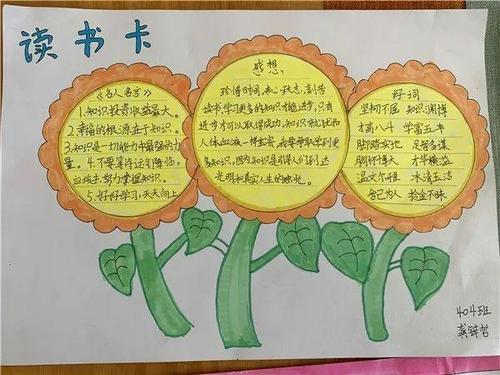 读书卡
《名人名言》
1.知识投资收益最大。
2.幸福的根源在于知识。
3.知识是一切能力中最强的力
量。4.不要等待运气降临,
应该去努力掌握知识。
5.好好学习,天天向上
感想
珍惜时间,刻苦
读书,学习更多的知识才能进步,只有
进步才可以取得成功,知识
人体血液一样宝贵
多知识,因为知识是引导人们到达
光明和真实人生的烛光。
好词
坚韧不屈 知识渊博
才高八斗 学富五车
脚踏实地 足智多谋
胸怀博大 才华横溢
温文尔雅 冰清玉洁
舍己为人 拾金不昧
404班